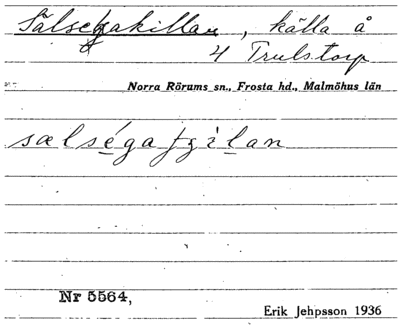 Sälsegakillan, källa å
4 Trulstorp
Norra Rörums sn., Frosta hd., Malmöhus län
Nr 5564,
Erik Jehpsson 1936